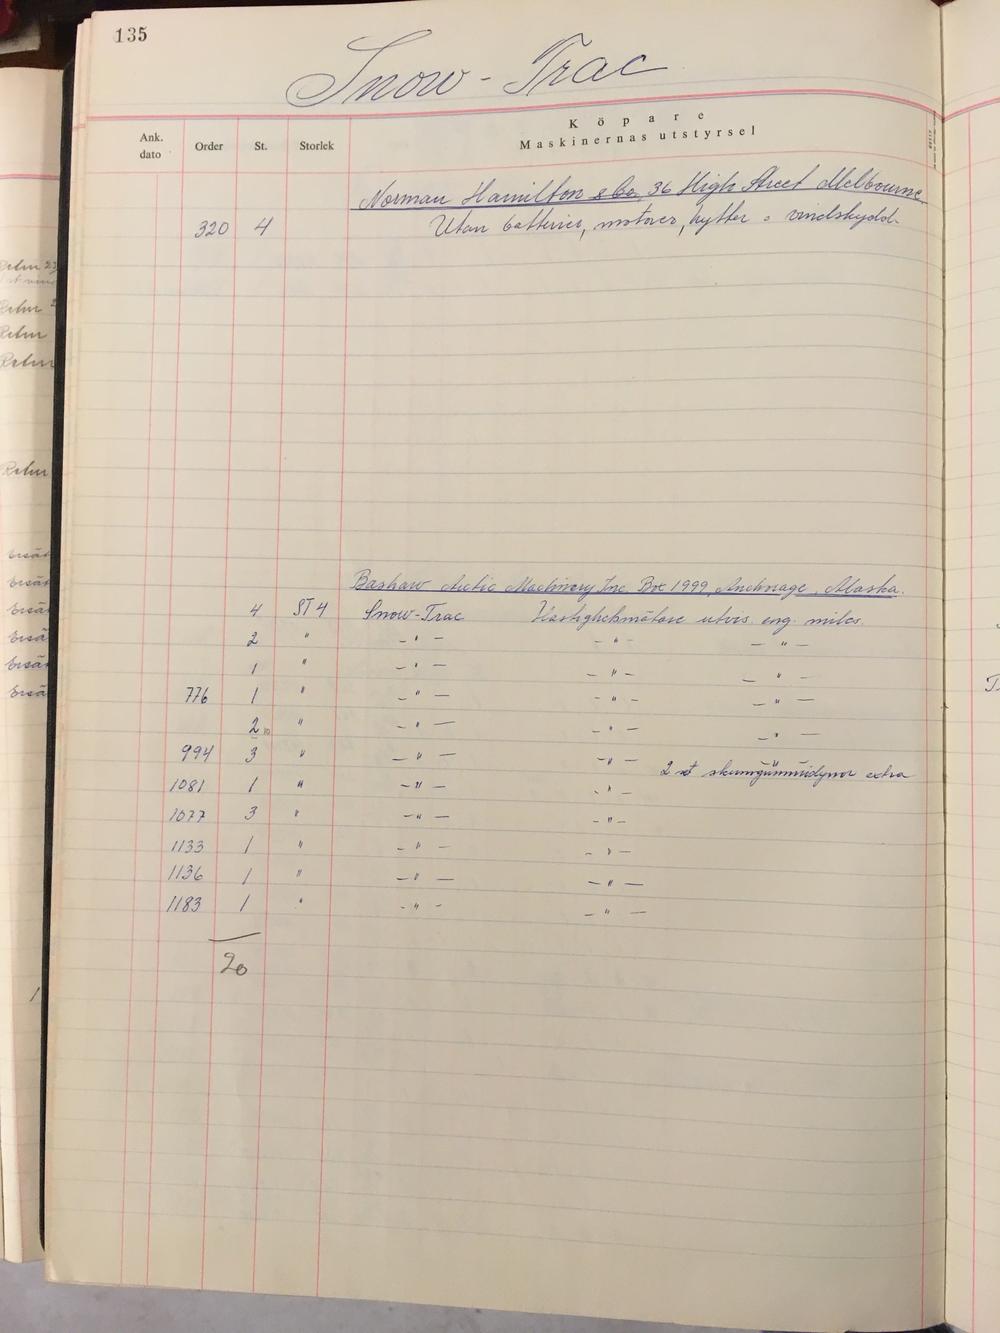 135
Snow-Trac
Ank. dato Order St. Storlek Köpare Maskinernas utstyrsel
Norman Hamilton & Co, 36 High Street Melbourne.
320 4 Utan batterier, motorer, hytter o vindskydd.
Bashaw Arctic Machinery Inc. Box 1999, Anchorage, Alaska.
4 ST4 Snow-Trac Hastighetsmätare utvis. eng. miles.
2 " - " - - " - - " -
1 " - " - - " - - " -
776 1 " - " - - " - - " -
2 " - " - - " - - " -
994 3 " - " - - " - - " -
1081 1 " - " - - " - 2 st skumgummidynor extra
1077 3 " - " - - " -
1133 1 " - " - - " -
1136 1 " - " - - " -
1183 1 " - " - - " -
20
Retur
Retur
Retur
Retur